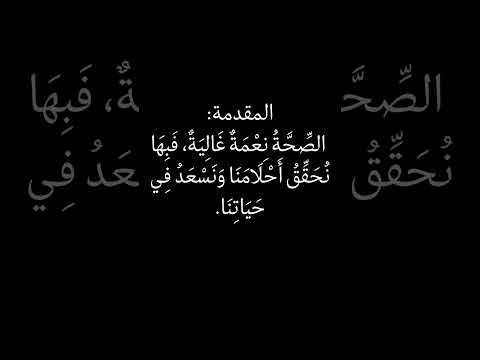 المقدمة:
الصِّحَّةُ نَعْمَةٌ غَالِيَةٌ، فَبِهَا
نُحَقِّقُ أَحْلَامَنَا وَنَسْعَدُ فِي
حَيَاتِنَا.